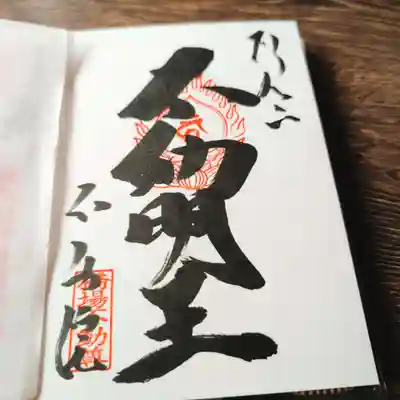 奉拝
不動明王
不動院
番場不動院